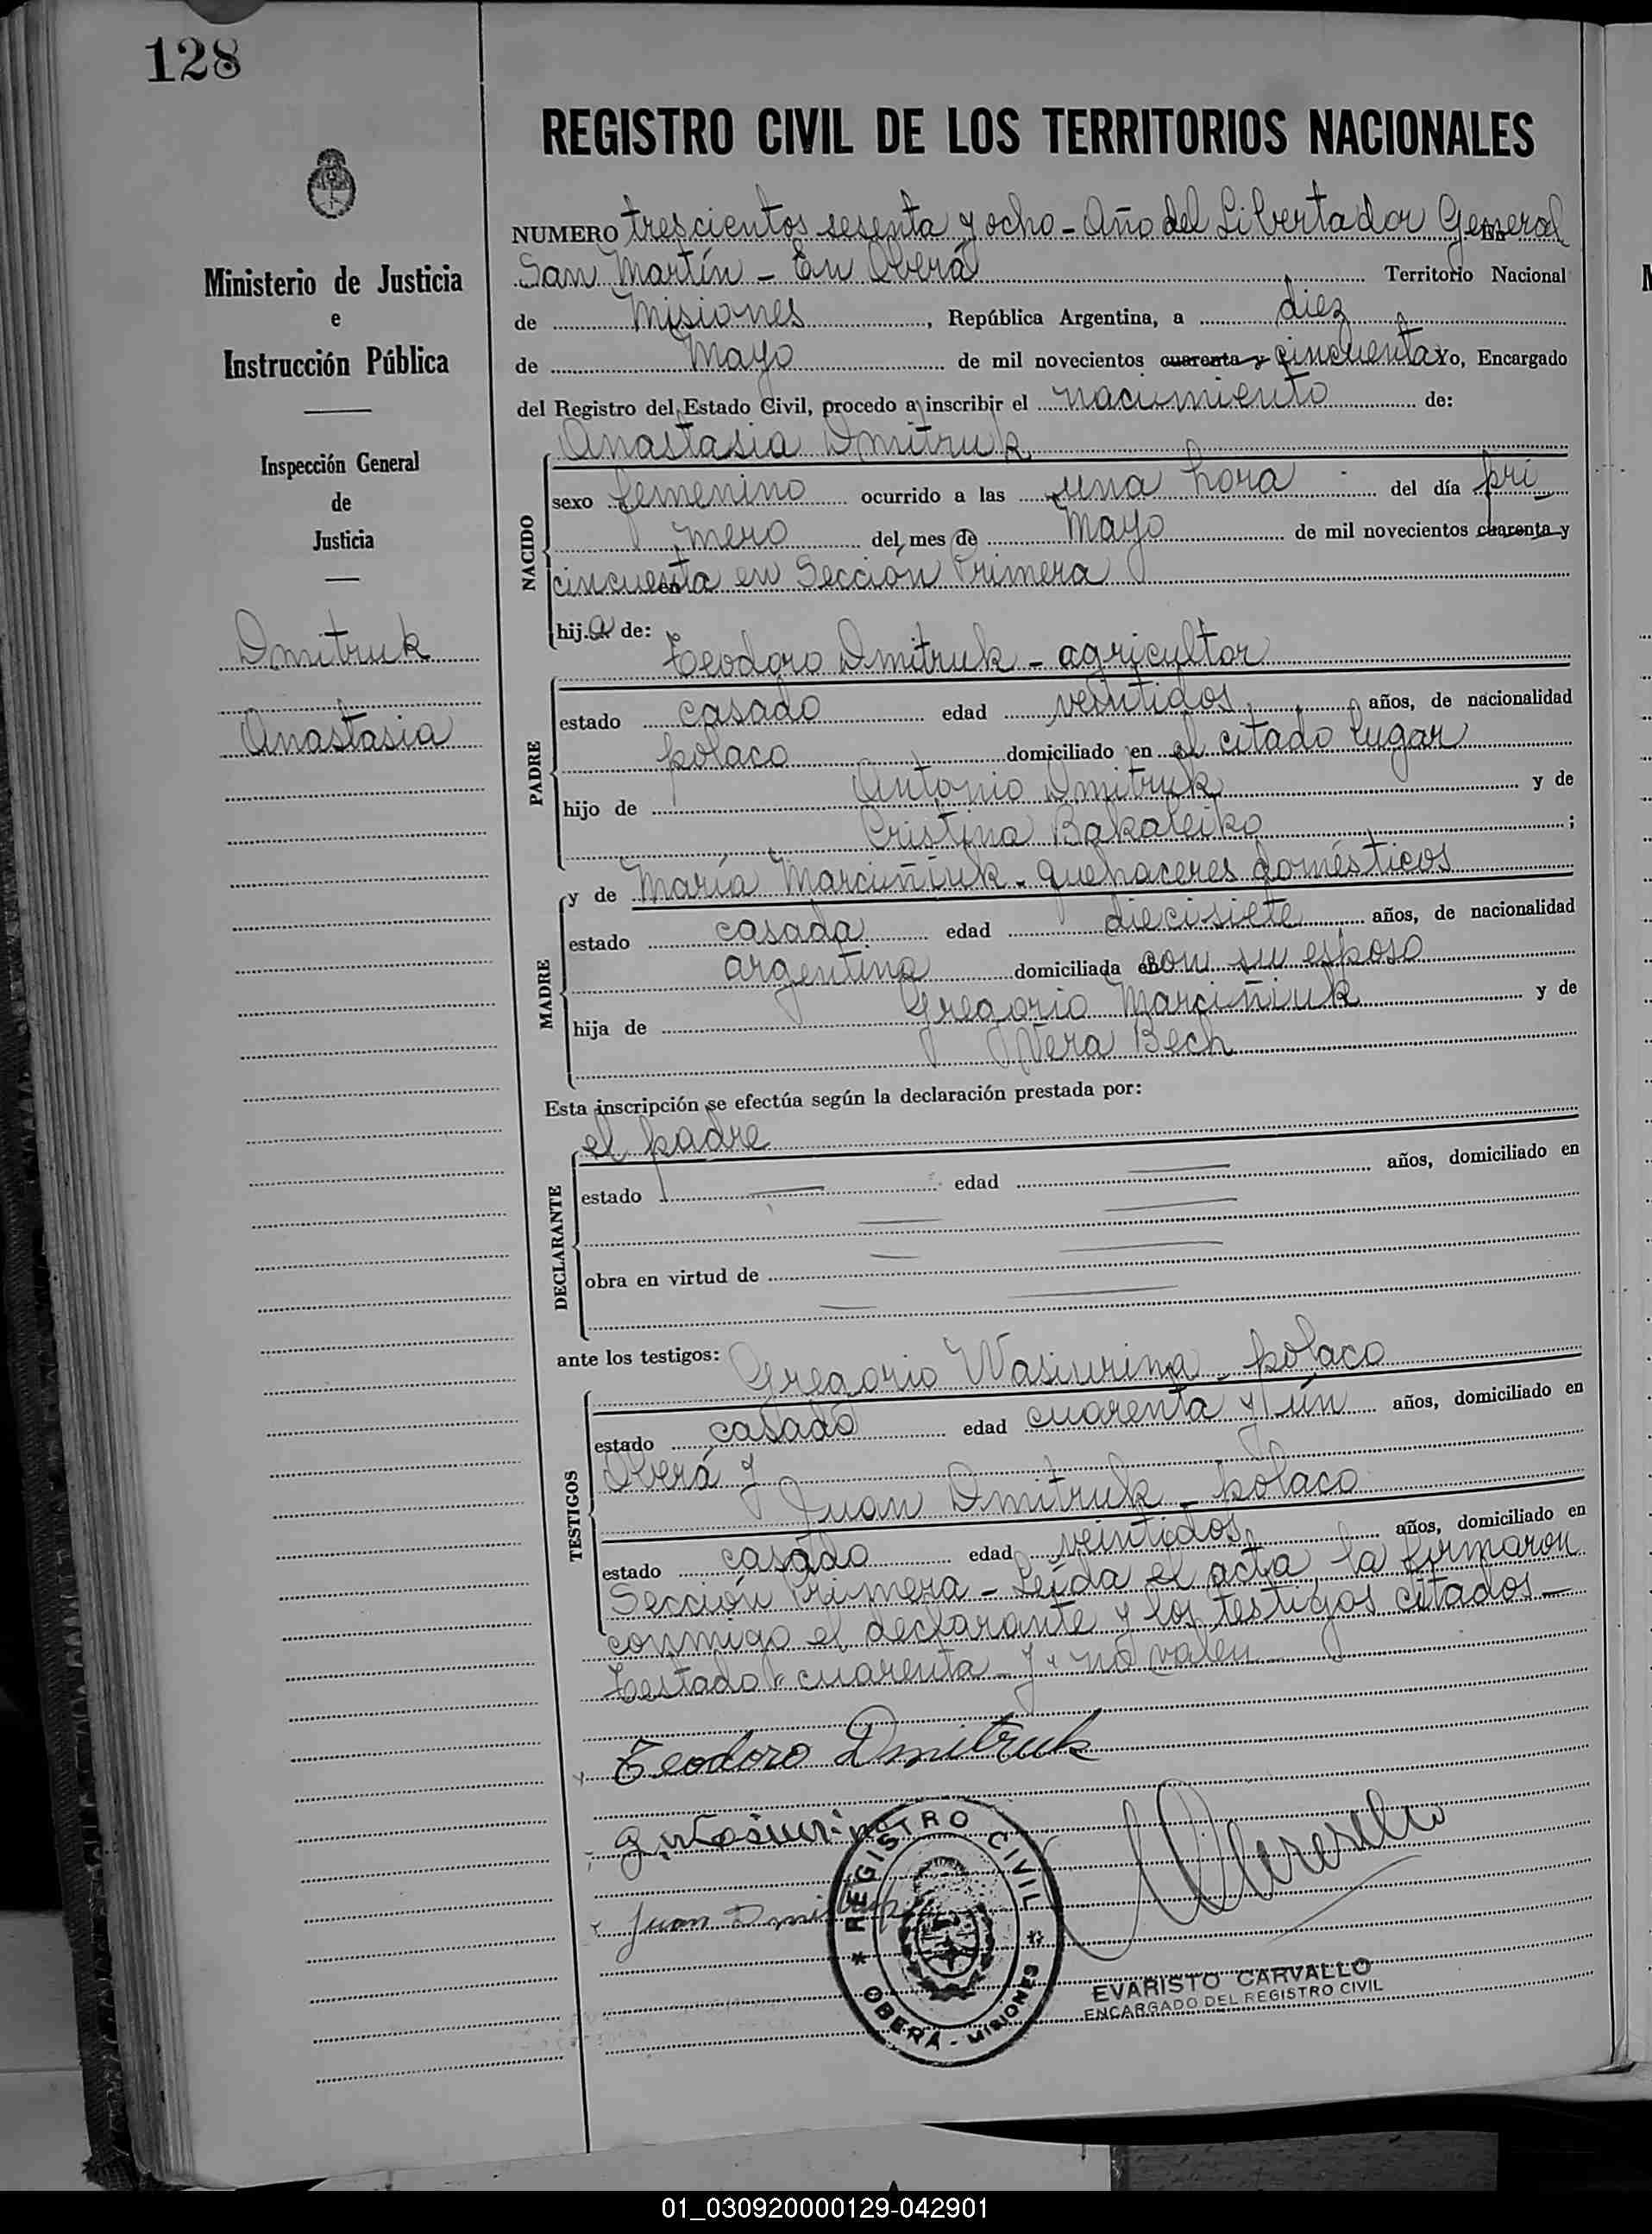 128
REGISTRO CIVIL DE LOS TERRITORIOS NACIONALES
Ministerio de Justicia
e
Instrucción Pública
Inspección General
de
Justicia
Dmitruk
Anastasia
NUMERO trescientos sesenta y ocho - Año del Libertador General
San Martín - En Oberá Territorio Nacional
de Misiones, República Argentina, a diez
de Mayo de mil novecientos cuarenta y cincuenta yo, Encargado
del Registro del Estado Civil, procedo a inscribir el nacimiento de:
Anastasia Dmitruk
NACIDO
sexo femenino ocurrido a las una hora del día pri
mero del mes de Mayo de mil novecientos cuarenta y
cincuenta en Sección Primera
hija de:
Teodoro Dmitruk - agricultor
PADRE
estado casado edad veintidos años, de nacionalidad
polaco domiciliado en el citado lugar
hijo de Antonio Dmitruk y de
Cristina Bakaleiko ;
y de María Marciñiuk - quehaceres domésticos
MADRE
estado casada edad diecisiete años, de nacionalidad
argentina domiciliada con su esposo
hija de Gregorio Marciñiuk y de
Wera Bech
Esta inscripción se efectúa según la declaración prestada por:
el padre
DECLARANTE
estado edad años, domiciliado en
obra en virtud de
ante los testigos: Gregorio Wasiurina - polaco
TESTIGOS
estado casado edad cuarenta y ún años, domiciliado en
Oberá y
Juan Dmitruk - polaco
estado casado edad veintidos años, domiciliado en
Sección Primera - Leída el acta la firmaron
conmigo el declarante y los testigos citados -
Testado "cuarenta - y" no valen -
Teodoro Dmitruk
Juan Dmitruk
REGISTRO CIVIL
OBERÁ - MISIONES
EVARISTO CARVALLO
ENCARGADO DEL REGISTRO CIVIL
01_030920000129-042901